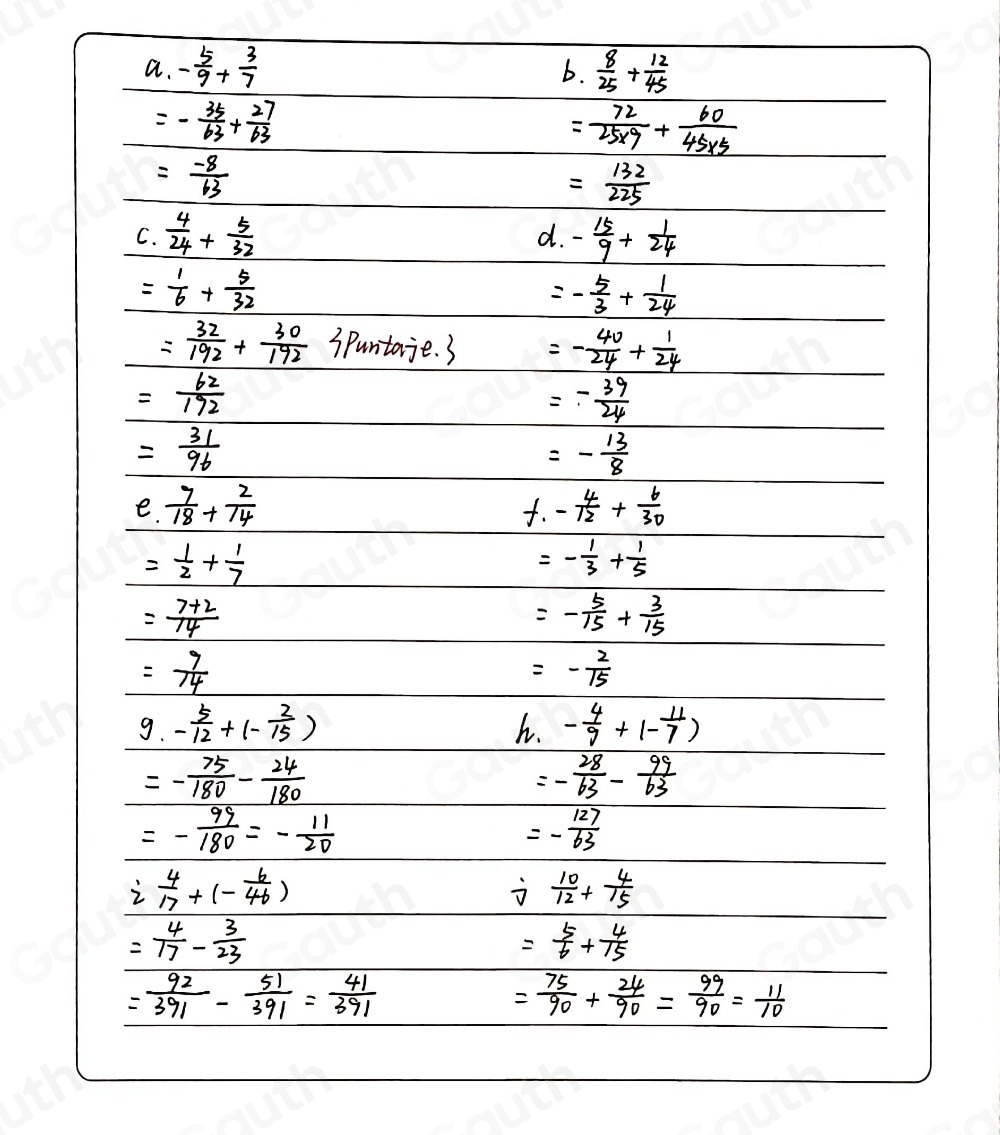 a. -5/9 + 3/7
= -35/63 + 27/63
= -8/63
b. 8/25 + 12/45
= 72/25×9 + 60/45×5
= 132/225
c. 4/24 + 5/32
= 1/6 + 5/32
= 32/192 + 30/192 {Puntaje.}
= 62/192
= 31/96
d. -15/9 + 1/24
= -5/3 + 1/24
= -40/24 + 1/24
= -39/24
= -13/8
e. 9/18 + 2/14
= 1/2 + 1/7
= 7+2/14
= 9/14
f. -4/12 + 6/30
= -1/3 + 1/5
= -5/15 + 3/15
= -2/15
g. -5/12 + (-2/15)
= -75/180 - 24/180
= -99/180 = -11/20
h. -4/9 + (-11/7)
= -28/63 - 99/63
= -127/63
i 4/17 + (-6/46)
= 4/17 - 3/23
= 92/391 - 51/391 = 41/391
j 10/12 + 4/15
= 5/6 + 4/15
= 75/90 + 24/90 = 99/90 = 11/10
Gauth